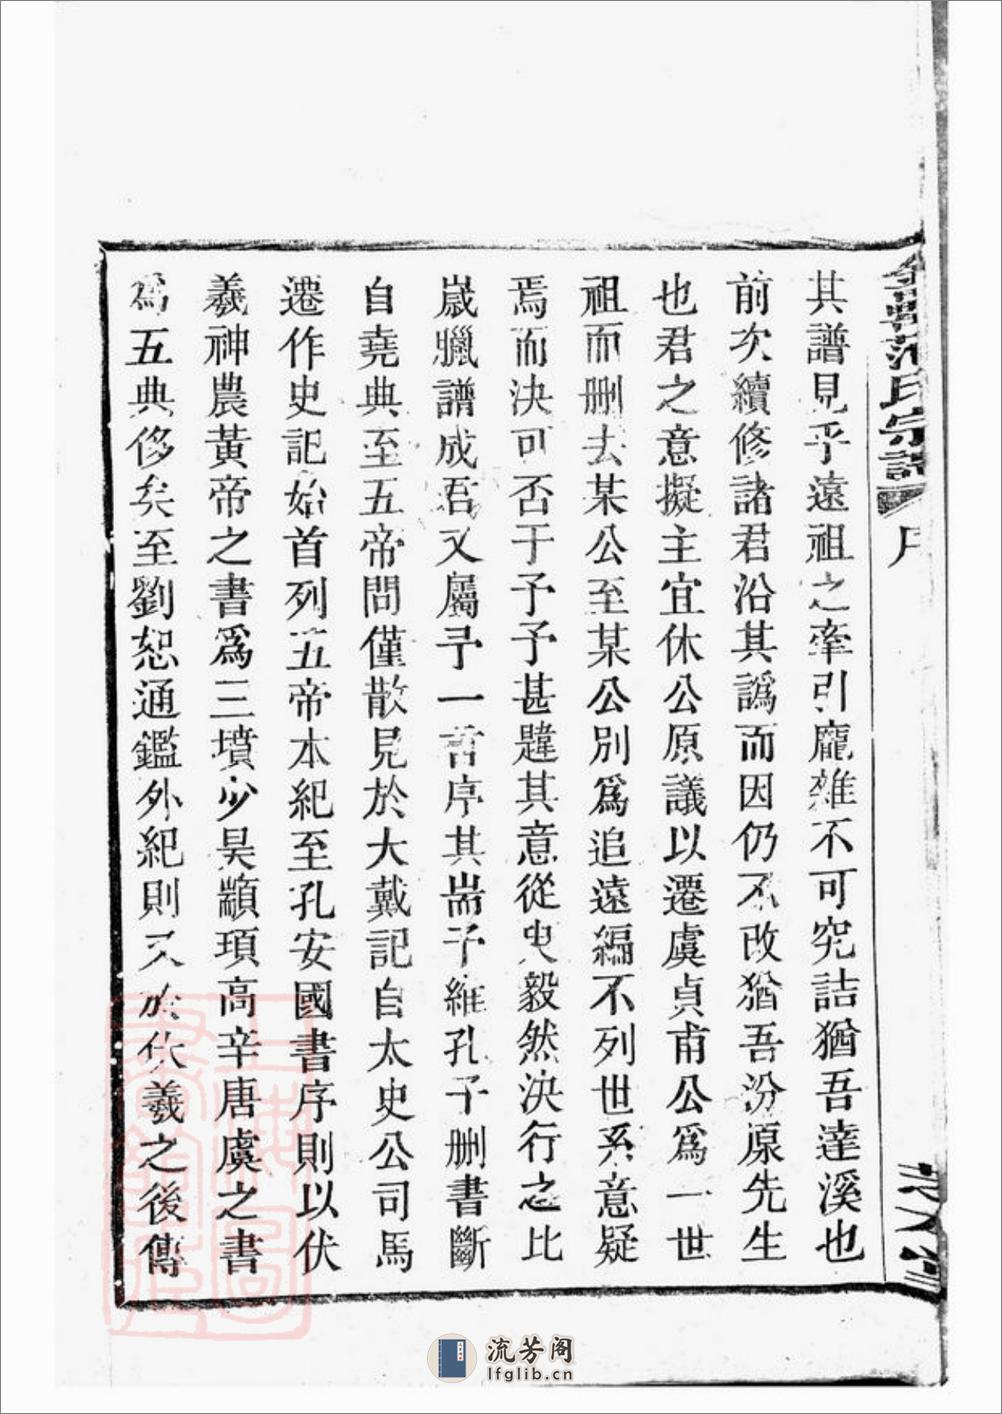 氏宗譜
其譜見乎遠祖之牽引龐雜不可究詰猶吾達溪也
前次續修諸君沿其譌而因仍不改猶吾汾原先生
也君之意擬主宜休公原議以遷虞貞甫公爲一世
祖而删去某公至某公別爲追遠編不列世系意疑
焉而決可否于予予甚韙其意從臾毅然決行之比
嵗臘譜成吾又屬予一言序其耑予維孔子删書斷
自堯典至五帝問僅散見於大戴記自太史公司馬
遷作史記始首列五帝本紀至孔安國書序則以伏
羲神農黃帝之書爲三墳少昊顓頊高辛唐虞之書
爲五典侈矣至劉恕通鑑外紀則又於伏羲之後傳
流芳阁
lfglib.cn